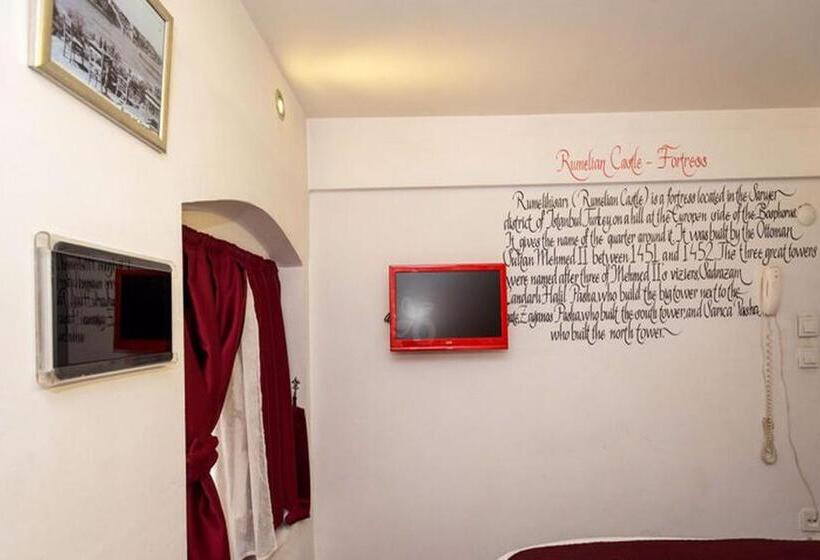 Rumelian Castle - Fortress
Rumelihisarı (Rumelian Castle) is a fortress located in the Sarıyer
district of Istanbul, Turkey, on a hill at the Europen side of the Bosphorus
It gives the name of the quarter around it. It was built by the Ottoman
Sultan Mehmed II between 1451 and 1452. The three great towers
were named after three of Mehmed II's viziers, Sadrazam
Çandarlı Halil Pasha, who build the big tower next to the
gate, Zaganos Pasha, who built the south tower, and Sarıca Pasha,
who built the north tower.